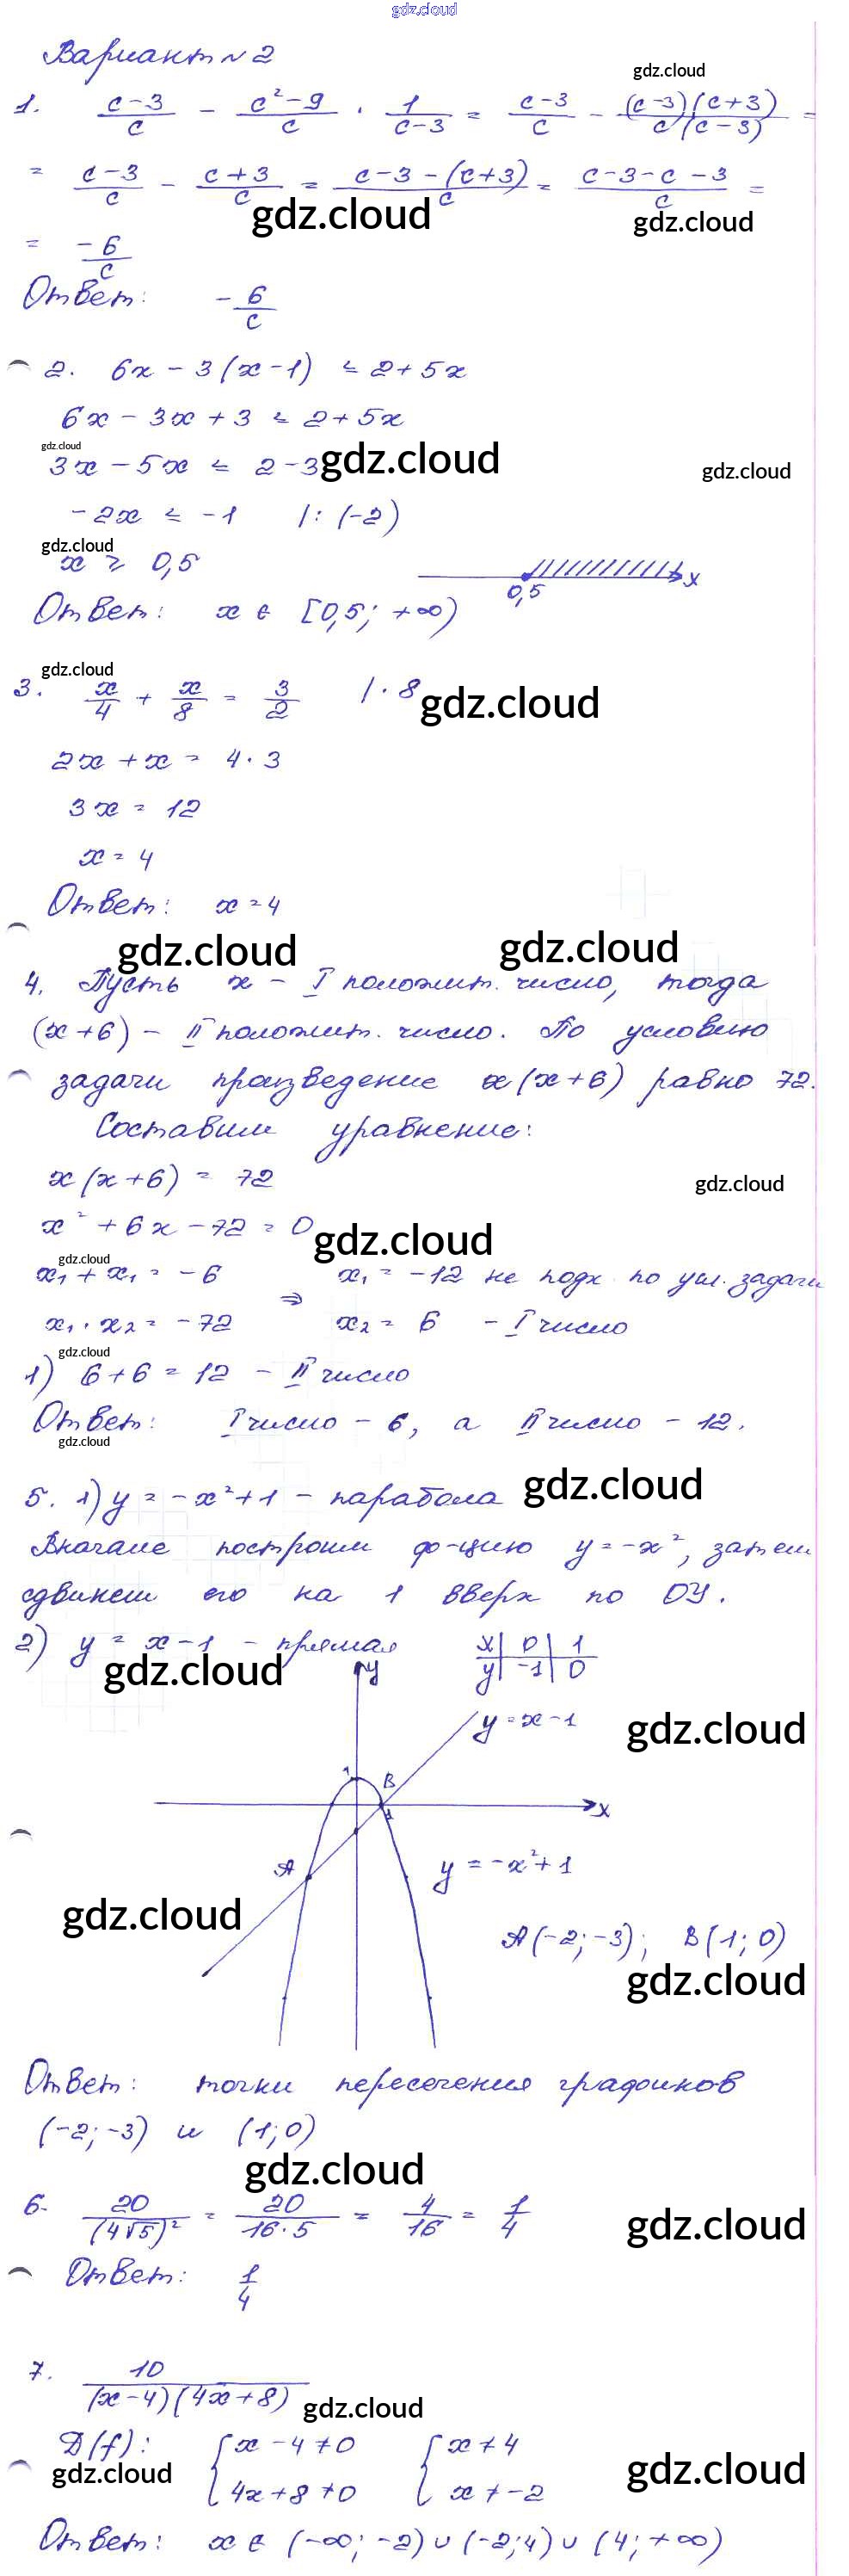 gdz.cloud
Вариант №2
gdz.cloud
1. (c-3)/c - (c²-9)/c · 1/(c-3) = (c-3)/c - (c-3)(c+3)/(c(c-3)) =
= (c-3)/c - (c+3)/c = (c-3-(c+3))/c = (c-3-c-3)/c =
gdz.cloud gdz.cloud
= -6/c
Ответ: -6/c
2. 6x - 3(x-1) ≤ 2+5x
6x - 3x + 3 ≤ 2+5x
gdz.cloud
3x - 5x ≤ 2-3 gdz.cloud gdz.cloud
-2x ≤ -1 |: (-2)
gdz.cloud
x ≥ 0,5
0,5 x
Ответ: x ∈ [0,5; +∞)
gdz.cloud
3. x/4 + x/8 = 3/2 |· 8 gdz.cloud
2x + x = 4·3
3x = 12
x = 4
Ответ: x = 4
gdz.cloud gdz.cloud
4. Пусть x - I положит. число, тогда
(x+6) - II положит. число. По условию
задачи произведение x(x+6) равно 72.
Составим уравнение:
x(x+6) = 72 gdz.cloud
x² + 6x - 72 = 0 gdz.cloud
gdz.cloud
x₁ + x₁ = -6 ⇒ x₁ = -12 не подх. по усл. задачи
x₁ · x₂ = -72 x₂ = 6 - I число
gdz.cloud
1) 6+6 = 12 - II число
Ответ: I число - 6, а II число - 12.
gdz.cloud
5. 1) y = -x²+1 - парабола gdz.cloud
Вначале построим ф-цию y = -x², затем
сдвинем его на 1 вверх по OY.
2) y = x-1 - прямая x | 0 | 1
gdz.cloud y | -1 | 0
y
y = x-1 gdz.cloud
1 B
1 x
A y = -x²+1
gdz.cloud
A(-2; -3); B(1; 0)
gdz.cloud
Ответ: точки пересечения графиков
(-2; -3) и (1; 0)
gdz.cloud
6. 20/(4√5)² = 20/(16·5) = 4/16 = 1/4 gdz.cloud
Ответ: 1/4
7. 10/((x-4)(4x+8)) gdz.cloud
D(f): { x-4 ≠ 0 { x ≠ 4
gdz.cloud gdz.cloud
4x+8 ≠ 0 x ≠ -2
Ответ: x ∈ (-∞; -2) ∪ (-2; 4) ∪ (4; +∞)